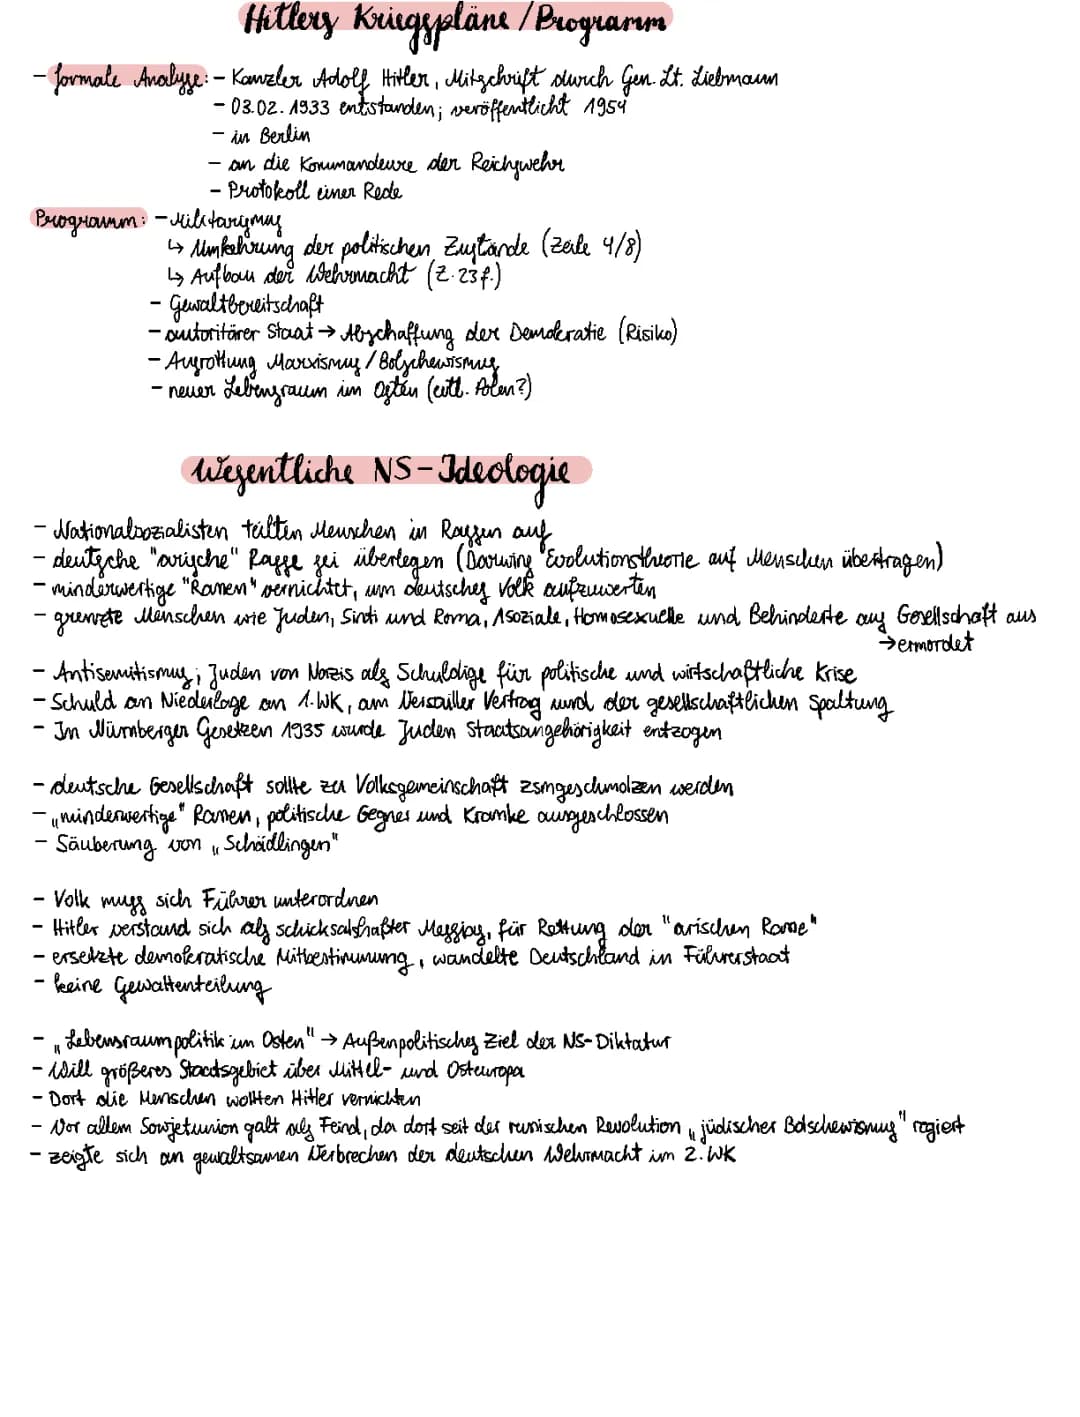 Hitlers Kriegspläne / Programm
- formale Analyse: - Kanzler Adolf Hitler, Mitschrift durch Gen. Lt. Liebmann
- 03.02.1933 entstanden; veröffentlicht 1954
- in Berlin
- an die Kommandeure der Reichswehr
- Protokoll einer Rede
Programm: - Militarismus
↳ Umkehrung der politischen Zustände (Zeile 4/8)
↳ Aufbau der Wehrmacht (Z. 23f.)
- Gewaltbereitschaft
- autoritärer Staat → Abschaffung der Demokratie (Risiko)
- Ausrottung Marxismus / Bolschewismus
- neuer Lebensraum im Osten (evtl. Polen?)
Wesentliche NS-Ideologie
- Nationalsozialisten teilten Menschen in Rassen auf
- deutsche "arische" Rasse sei überlegen (Darwins Evolutionstheorie auf Menschen übertragen)
- minderwertige "Rassen" vernichtet, um deutsches Volk aufzuwerten
- grenzte Menschen wie Juden, Sinti und Roma, Asoziale, Homosexuelle und Behinderte aus Gesellschaft aus
→ ermordet
- Antisemitismus; Juden von Nazis als Schuldige für politische und wirtschaftliche Krise
- Schuld an Niederlage an 1. WK, am Versailler Vertrag und der gesellschaftlichen Spaltung
- In Nürnberger Gesetzen 1935 wurde Juden Staatsangehörigkeit entzogen
- deutsche Gesellschaft sollte zu Volksgemeinschaft zsmgeschmolzen werden
- „minderwertige" Rassen, politische Gegner und Kranke ausgeschlossen
- Säuberung von „Schädlingen"
- Volk muss sich Führer unterordnen
- Hitler verstand sich als schicksalshafter Messias, für Rettung der "arischen Rasse"
- ersetzte demokratische Mitbestimmung, wandelte Deutschland in Führerstaat
- keine Gewaltenteilung
- „Lebensraumpolitik im Osten" → Außenpolitisches Ziel der NS-Diktatur
- Will größeres Staatsgebiet über Mittel- und Osteuropa
- Dort die Menschen wollten Hitler vernichten
- Vor allem Sowjetunion galt als Feind, da dort seit der russischen Revolution „jüdischer Bolschewismus" regiert
- zeigte sich an gewaltsamen Verbrechen der deutschen Wehrmacht im 2. WK